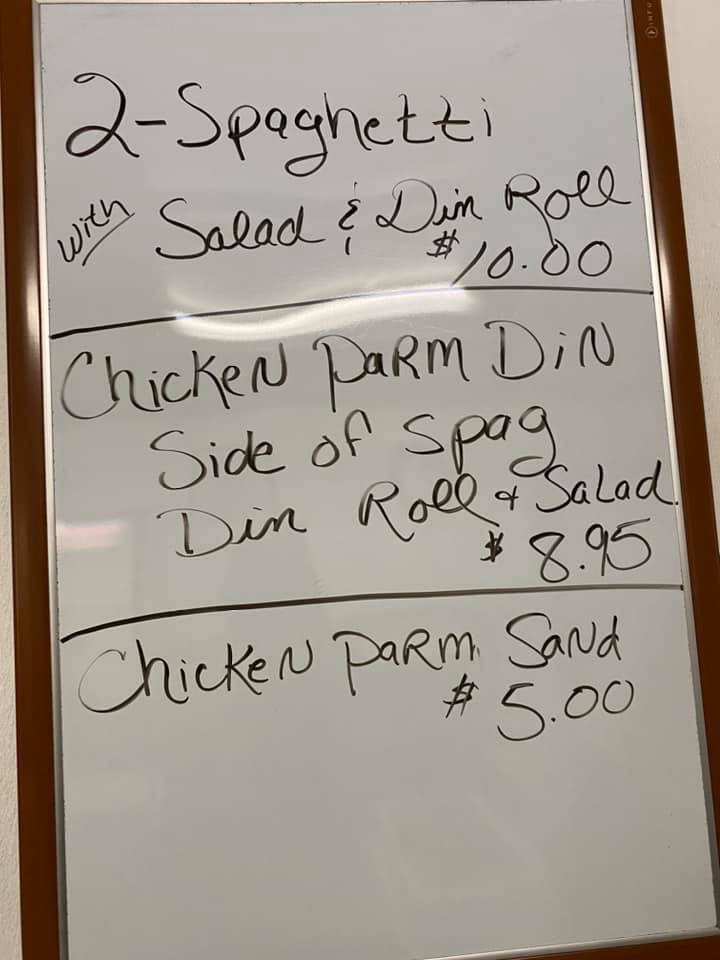 2-Spaghetti
with Salad & Din Roll
$10.00
Chicken Parm Din
Side of Spag
Din Roll & Salad
$8.95
Chicken Parm Sand
$5.00